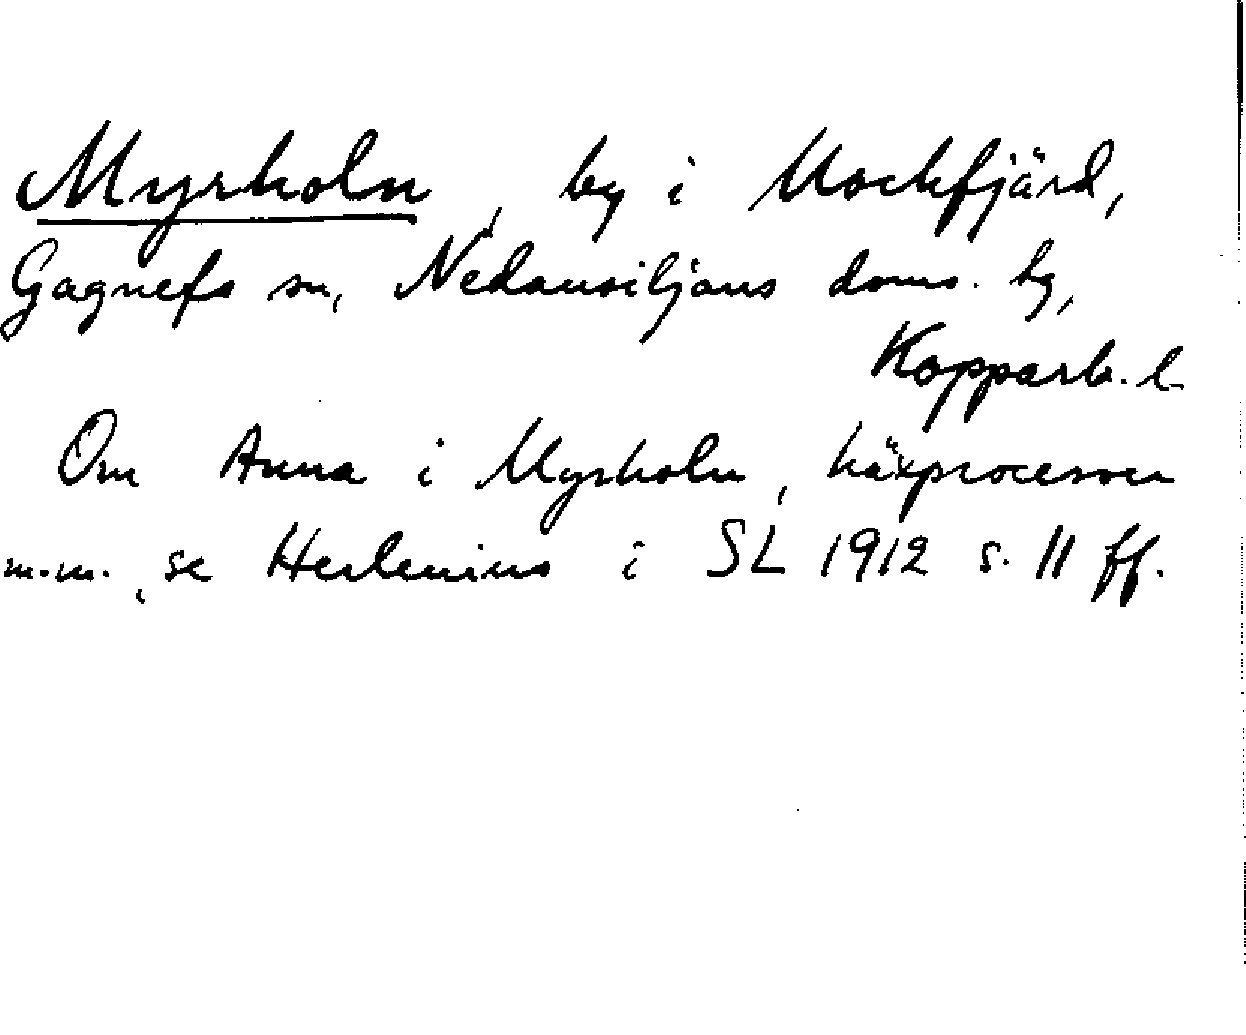 Myrholn, by i Mockfjärd,
Gagnefs sn, Nedansiljans doms. hg,
Kopparb. l.
Om Anna i Myrholn, häxprocessen
m.m., se Herlenius i SL 1912 s. 11 ff.